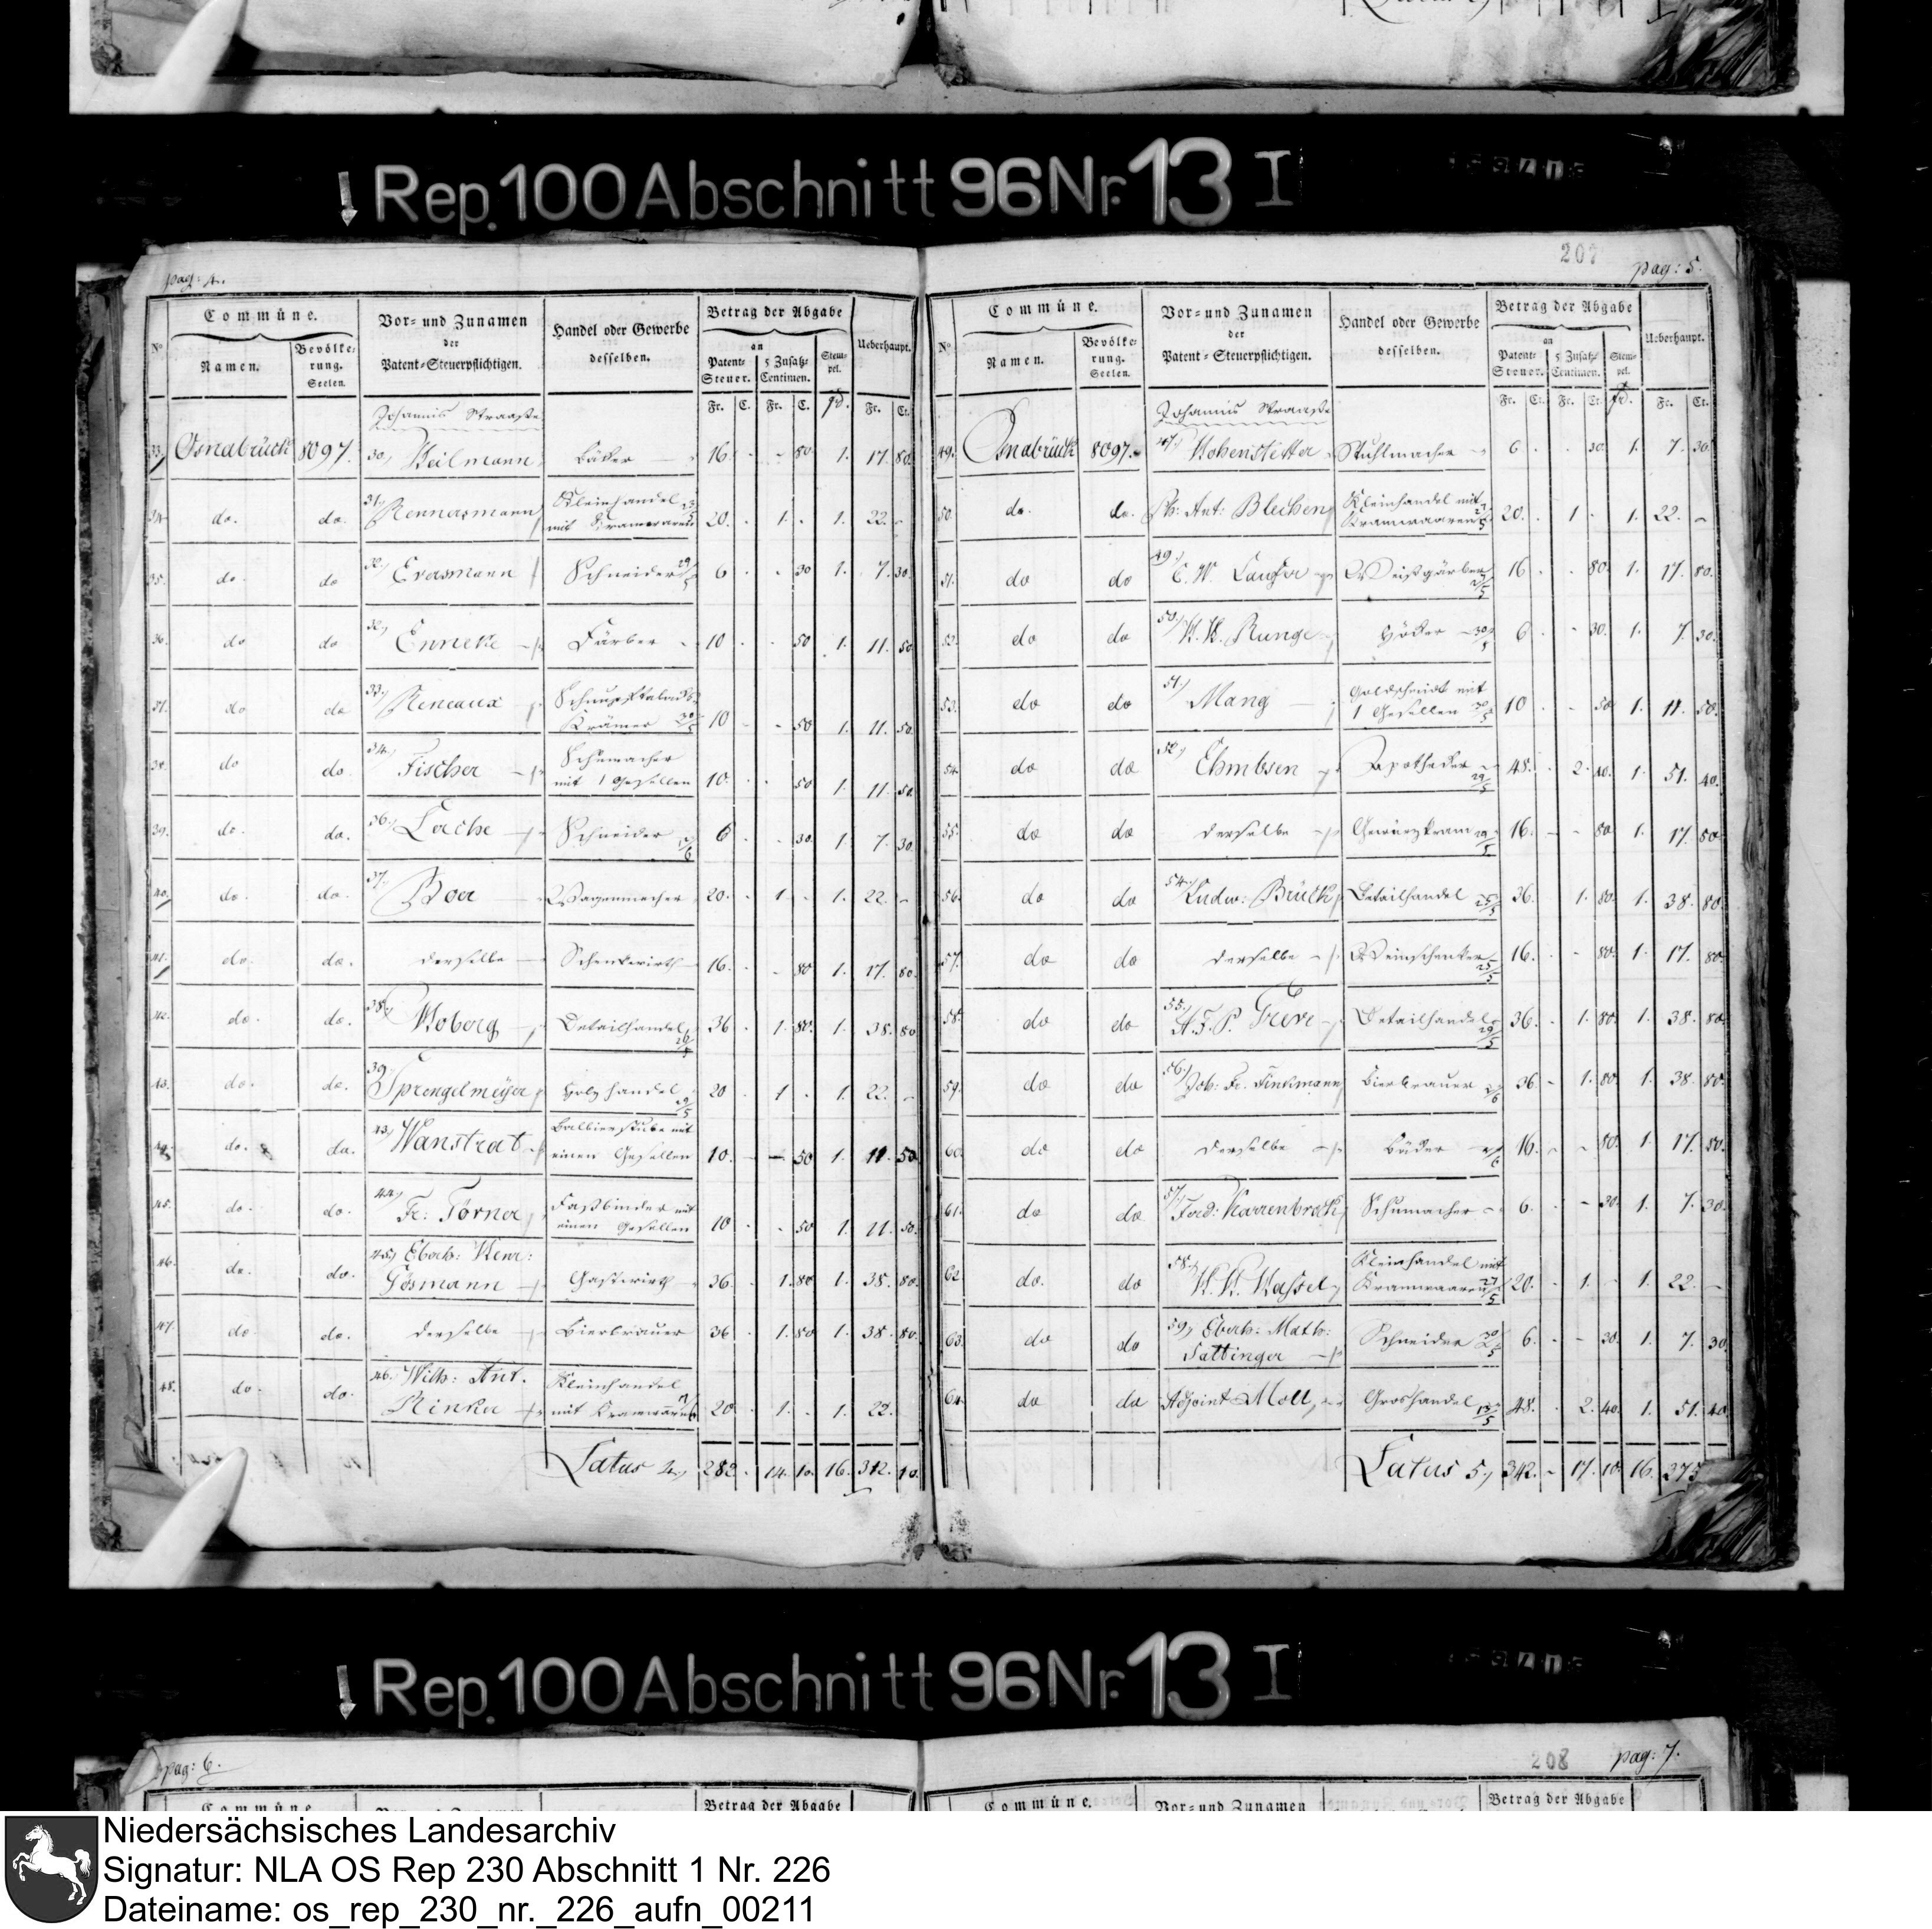 Rep. 100 Abschnitt 96 Nr. 13 I
pag: 4.
Commüne.
Vor- und Zunamen
der
Patent-Steuerpflichtigen.
Handel oder Gewerbe
desselben.
Betrag der Abgabe
an
Ueberhaupt.
No
Namen.
Bevölke-
rung.
Seelen.
Patent-
Steuer.
5 Zusatz-
Centimen.
Stem-
pel.
Fr. C. Fr. C. fr. Fr. Ct.
Johannis Straaße
33. Osnabrück 8097. 30, Beckер 16. - 80 1. 17. 80.
34. do. do. 31, Kleinhandel
mit Kramwaaren 20. 1. - 1. 22. -
35. do. do 32, Erdsmann Schneider 29/5 6 - 30 1. 7. 30.
36. do do 32, Enneke Färber 10 - 50 1. 11. 50
37. do do 33, Reneaux Schnupftabacks
Krämer 30/5 10 - 50 1. 11. 50.
38. do do. 34, Fischer Schumacher
mit 1 Gesellen 10. 50 1. 11. 50
39. do. do. 36, Loche Schneider 6 - 30. 1. 7. 30.
40. do. do. 37, Boer Wagenmacher 20. 1. - 1. 22. -
41. do. do. derselbe Schenkwirth 16. - 80 1. 17. 80.
42. do. do. 38, Woberg Detailhandel 36 1. 80. 1. 38. 80
43. do. do. 39, Sprengelmeyer Holzhandel 29/5 20 1 - 1. 22. -
44. do. do. 43, Wanstrat Balbierstube mit
einen Gesellen 10. - 50 1. 11. 50
45. do. do. 44, Fr: Törner Faßbinder mit
einen Gesellen 10 - 50 1. 11. 50.
46. do. do. 45, Eberh: Henr:
Gösmann Gastwirth 36. 1. 80 1. 38. 80.
47. do. do. derselbe Bierbrauer 36 1. 80 1. 38. 80.
48. do. do. 46. Wilh: Ant.
Rinker Kleinhandel
mit Kramwaaren 20. 1. - 1. 22.
Latus 4, 282. 14. 10. 16. 312. 10.
207
pag: 5.
Commüne.
Vor- und Zunamen
der
Patent-Steuerpflichtigen.
Handel oder Gewerbe
desselben.
Betrag der Abgabe
an
Ueberhaupt.
No
Namen.
Bevölke-
rung.
Seelen.
Patent-
Steuer.
5 Zusatz-
Centimen.
Stem-
pel.
Fr. Ct. Fr. Ct. fr. Fr. Ct.
Johannis Straaße
49. Osnabrück 8097. 47, Hohenstetter Stuhlmacher 6 30. 1. 7. 30
50. do. do. Ph: Ant: Blechen Kleinhandel mit
Kramwaaren 20. 1 - 1. 22. -
51. do do 49, C. W. Weißgärber 16 - 80. 1. 17. 80.
52. do do 50, H. H. Runge Höcker 30/5 6 - 30. 1. 7. 30.
53. do do 51, Mang Goldschmidt mit
1 Gesellen 30/5 10 - 50 1. 11. 50.
54. do do 52, Ehmbsen Apotheker 29/5 48. 2. 40. 1. 51. 40.
55. do do derselbe Gewürzkram 29/5 16. - 80 1. 17 80
56. do do 54, Ludw: Brück Detailhandel 25/5 36. 1. 80. 1. 38. 80.
57. do do derselbe Weinschenker 25/5 16. - 80. 1. 17. 80.
58. do do 55, H. F. P. Greve Detailhandel 29/5 36. 1. 80. 1. 38. 80.
59. do do 56, Joh: Fr. Finkmann Bierbrauer 36 - 1. 80. 1. 38. 80.
60. do do derselbe Becker 16. - 80. 1. 17. 80.
61. do do 57, Ferd: Karrenbrock Schumacher 6. - 30. 1. 7. 30.
62. do. do 58, H. H. Wassel Kleinhandel mit
Kramwaaren 27/5 20. 1. - 1. 22. -
63. do do 59, Eberh: Math:
Tattinger Schneider 30/5 6. - 30. 1. 7. 30
64. do do Adjoint Moll, Groshandel 48. 2. 40. 1. 51. 40
Latus 5, 342. - 17. 10. 16. 375
Rep. 100 Abschnitt 96 Nr. 13 I
pag: 6.
208
pag: 7.
Commüne.
Betrag der Abgabe
Commüne.
Vor- und Zunamen
Betrag der Abgabe
Niedersächsisches Landesarchiv
Signatur: NLA OS Rep 230 Abschnitt 1 Nr. 226
Dateiname: os_rep_230_nr._226_aufn_00211